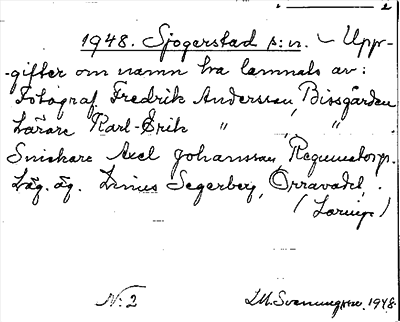 1948. Sjogerstad s:n. - Upp-
-gifter om namn ha lämnats av:
Fotograf Fredrik Andersson, Bissgården
Lärare Karl-Erik " , "
Snickare Axel Johansson,
Läg. äg. Linus Segerberg, Orravadet,
(Larup)
N: 2
1948.